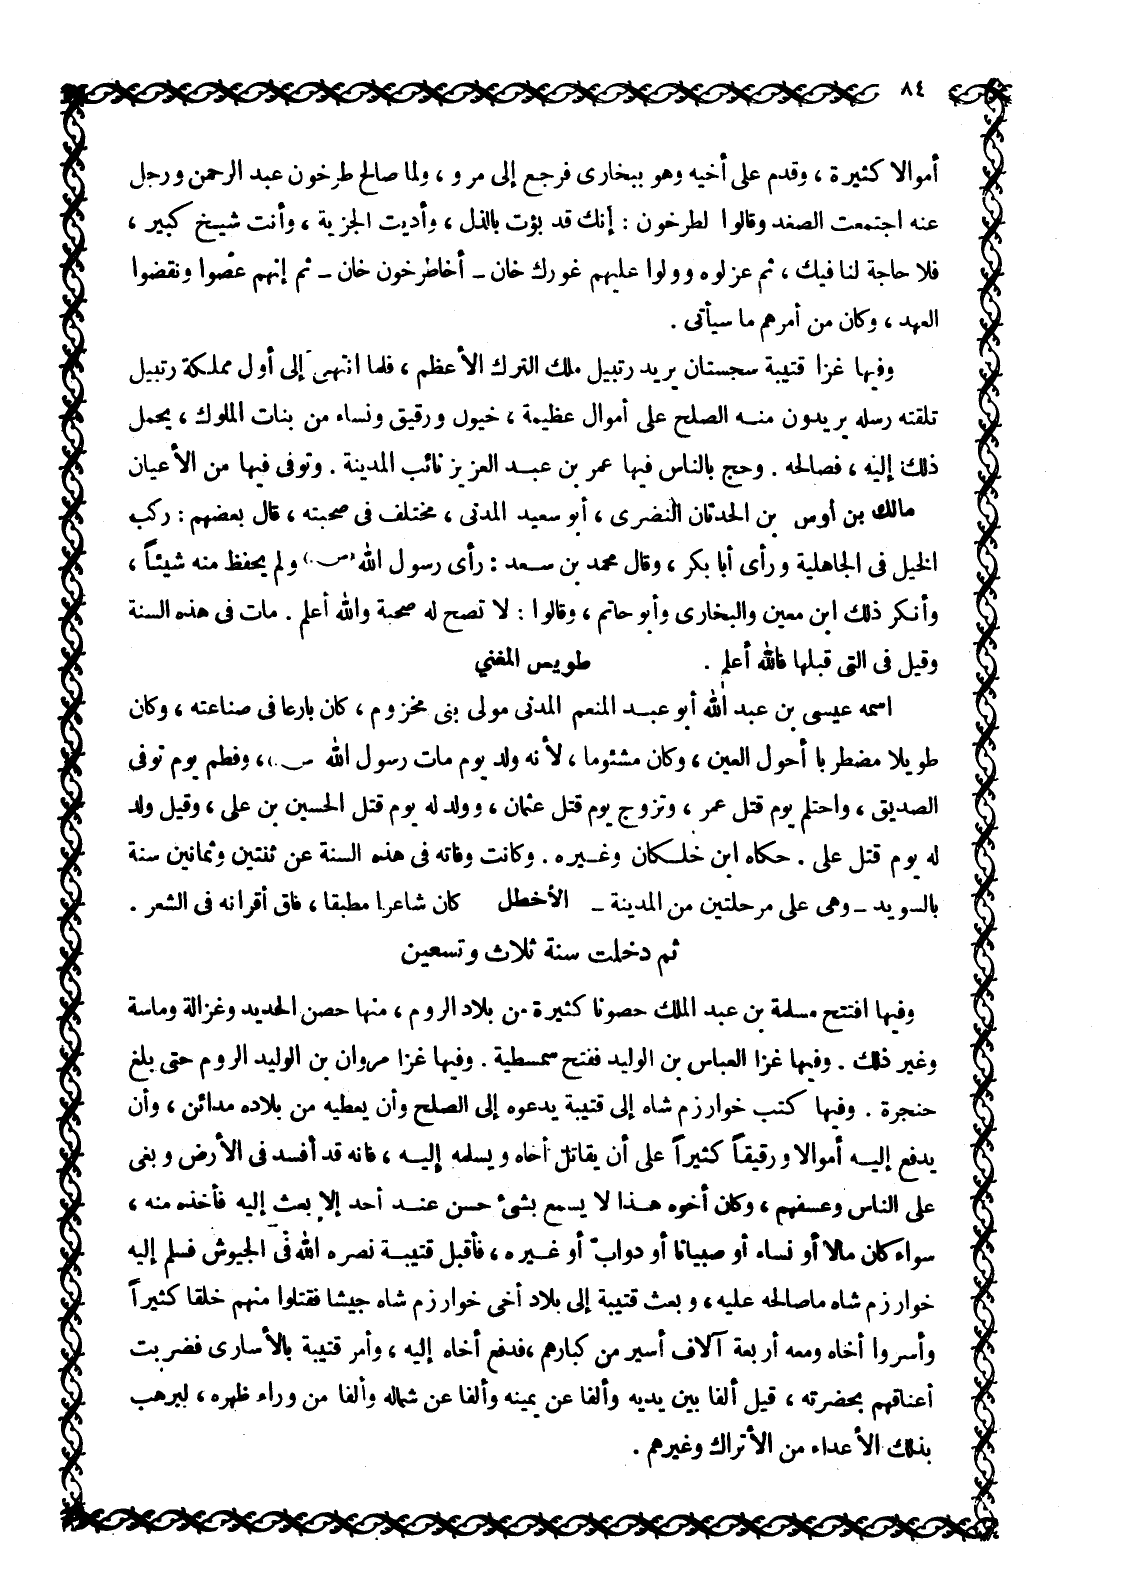 ٨٤
أموالا كثيرة ، وقدم على أخيه وهو ببخارى فرجع إلى مرو ، ولما صالح طرخون عبد الرحمن ورحل
عنه اجتمعت الصغد وقالوا لطرخون : إنك قد بؤت بالذل ، وأديت الجزية ، وأنت شيخ كبير ،
فلا حاجة لنا فيك ، ثم عزلوه وولوا عليهم غورك خان – أخاطرخون خان – ثم إنهم عصوا ونقضوا
العهد ، وكان من أمرهم ما سيأتى .
وفيها غزا قتيبة سجستان يريد رتبيل ملك الترك الأعظم ، فلما انتهى إلى أول مملكة رتبيل
تلقته رسله يريدون منه الصلح على أموال عظيمة ، خيول ورقيق ونساء من بنات الملوك ، يحمل
ذلك إليه ، فصالحه . وحج بالناس فيها عمر بن عبد العزيز نائب المدينة . وتوفى فيها من الأعيان
مالك بن أوس بن الحدثان النضرى ، أبو سعيد المدنى ، مختلف فى صحبته ، قال بعضهم : ركب
الخيل فى الجاهلية ورأى أبا بكر ، وقال محمد بن سعد : رأى رسول الله (ص) ولم يحفظ منه شيئاً ،
وأنكر ذلك ابن معين والبخارى وأبو حاتم ، وقالوا : لا تصح له صحبة والله أعلم . مات فى هذه السنة
وقيل فى التى قبلها فالله أعلم . طويس المغني
اسمه عيسى بن عبد الله أبو عبد المنعم المدنى مولى بنى مخزوم ، كان بارعا فى صناعته ، وكان
طويلا مضطربا أحول العين ، وكان مشئوما ، لأنه ولد يوم مات رسول الله (ص) ، وفطم يوم توفى
الصديق ، واحتلم يوم قتل عمر ، وتزوج يوم قتل عثمان ، وولد له يوم قتل الحسين بن على ، وقيل ولد
له يوم قتل على . حكاه ابن خلكان وغيره . وكانت وفاته فى هذه السنة عن ثنتين وثمانين سنة
بالسويد – وهى على مرحلتين من المدينة – الأخطل كان شاعرا مطبقا ، فاق أقرانه فى الشعر .
ثم دخلت سنة ثلاث وتسعين
وفيها افتتح مسلمة بن عبد الملك حصونا كثيرة من بلاد الروم ، منها حصن الحديد وغزالة وماسة
وغير ذلك . وفيها غزا العباس بن الوليد ففتح سمسطية . وفيها غزا مروان بن الوليد الروم حتى بلغ
حنجرة . وفيها كتب خوارزم شاه إلى قتيبة يدعوه إلى الصلح وأن يعطيه من بلاده مدائن ، وأن
يدفع إليه أموالا ورقيقاً كثيراً على أن يقاتل أخاه ويسلمه إليه ، فانه قد أفسد فى الأرض وبغى
على الناس وعسفهم ، وكان أخوه هذا لا يسمع بشئ حسن عند أحد إلا بعث إليه فأخذه منه ،
سواء كان مالا أو نساء أو صبيانا أو دواب أو غيره ، فأقبل قتيبة نصره الله فى الجيوش فسلم إليه
خوارزم شاه ماصالحه عليه ، وبعث قتيبة إلى بلاد أخى خوارزم شاه جيشا فقتلوا منهم خلقا كثيراً
وأسروا أخاه ومعه أربعة آلاف أسير من كبارهم ،فدفع أخاه إليه ، وأمر قتيبة بالأسارى فضربت
أعناقهم بحضرته ، قيل ألفا بين يديه وألفا عن يمينه وألفا عن شماله وألفا من وراء ظهره ، ليرهب
بذلك الأعداء من الأتراك وغيرهم .